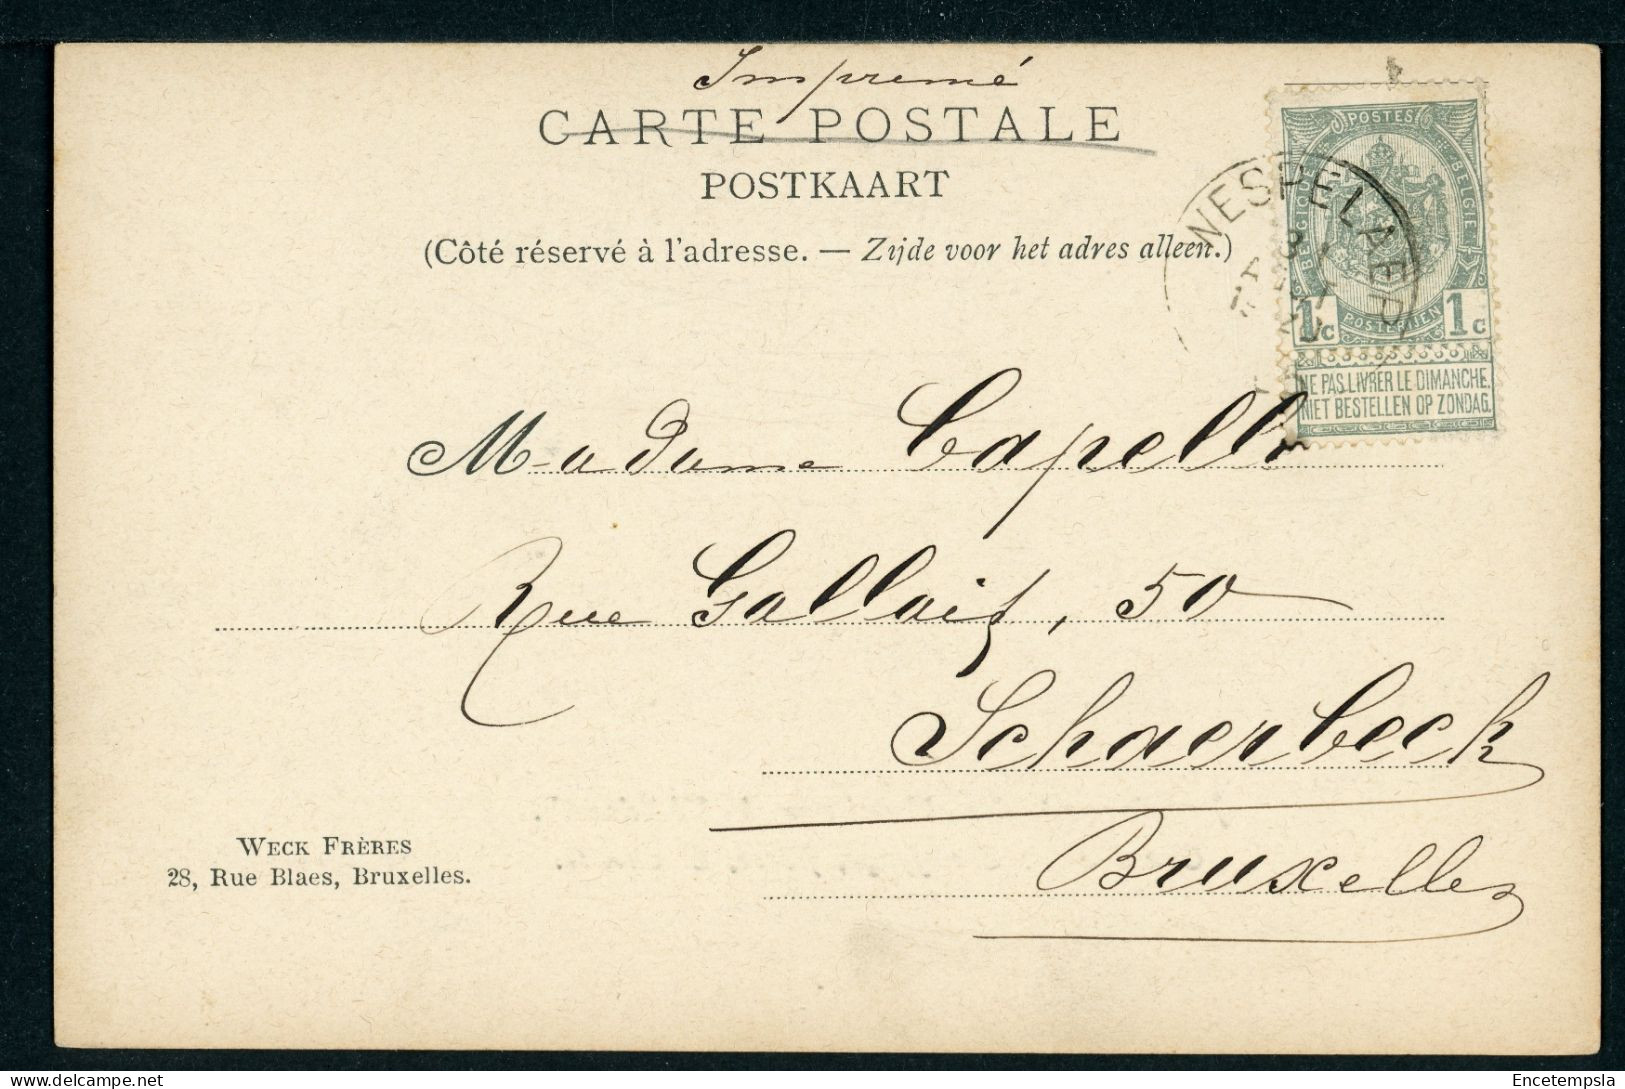 Impremé
CARTE POSTALE
POSTKAART
(Côté réservé à l'adresse. — Zijde voor het adres alleen.)
POSTES
BELGIQUE
BELGIE
1c POSTERIJEN 1c
NE PAS LIVRER LE DIMANCHE.
NIET BESTELLEN OP ZONDAG.
WESPELAER
Madame Capelle
Rue Gallait, 50
Schaerbeck
Bruxelles
WECK FRÈRES
28, Rue Blaes, Bruxelles.
delcampe.net
Encetempsla